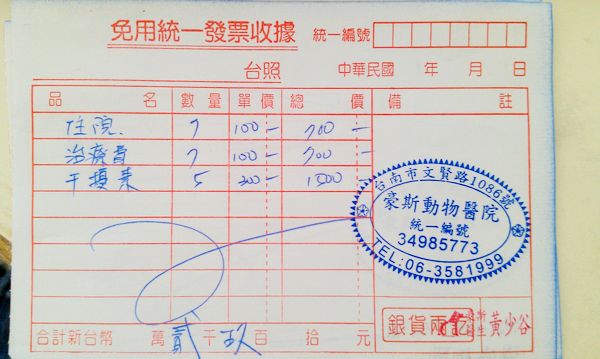 免用統一發票收據 統一編號
台照 中華民國 年 月 日
品 名 數量 單價 總 價 備 註
住院. 7 100- 700-
治療費 7 100- 700-
干擾素 5 300- 1500-
台南市文賢路1086號
豪斯動物醫院
統一編號
34985773
TEL:06-3581999
銀貨兩訖 黃少谷
合計新台幣 萬 貳 千 玖 百 拾 元